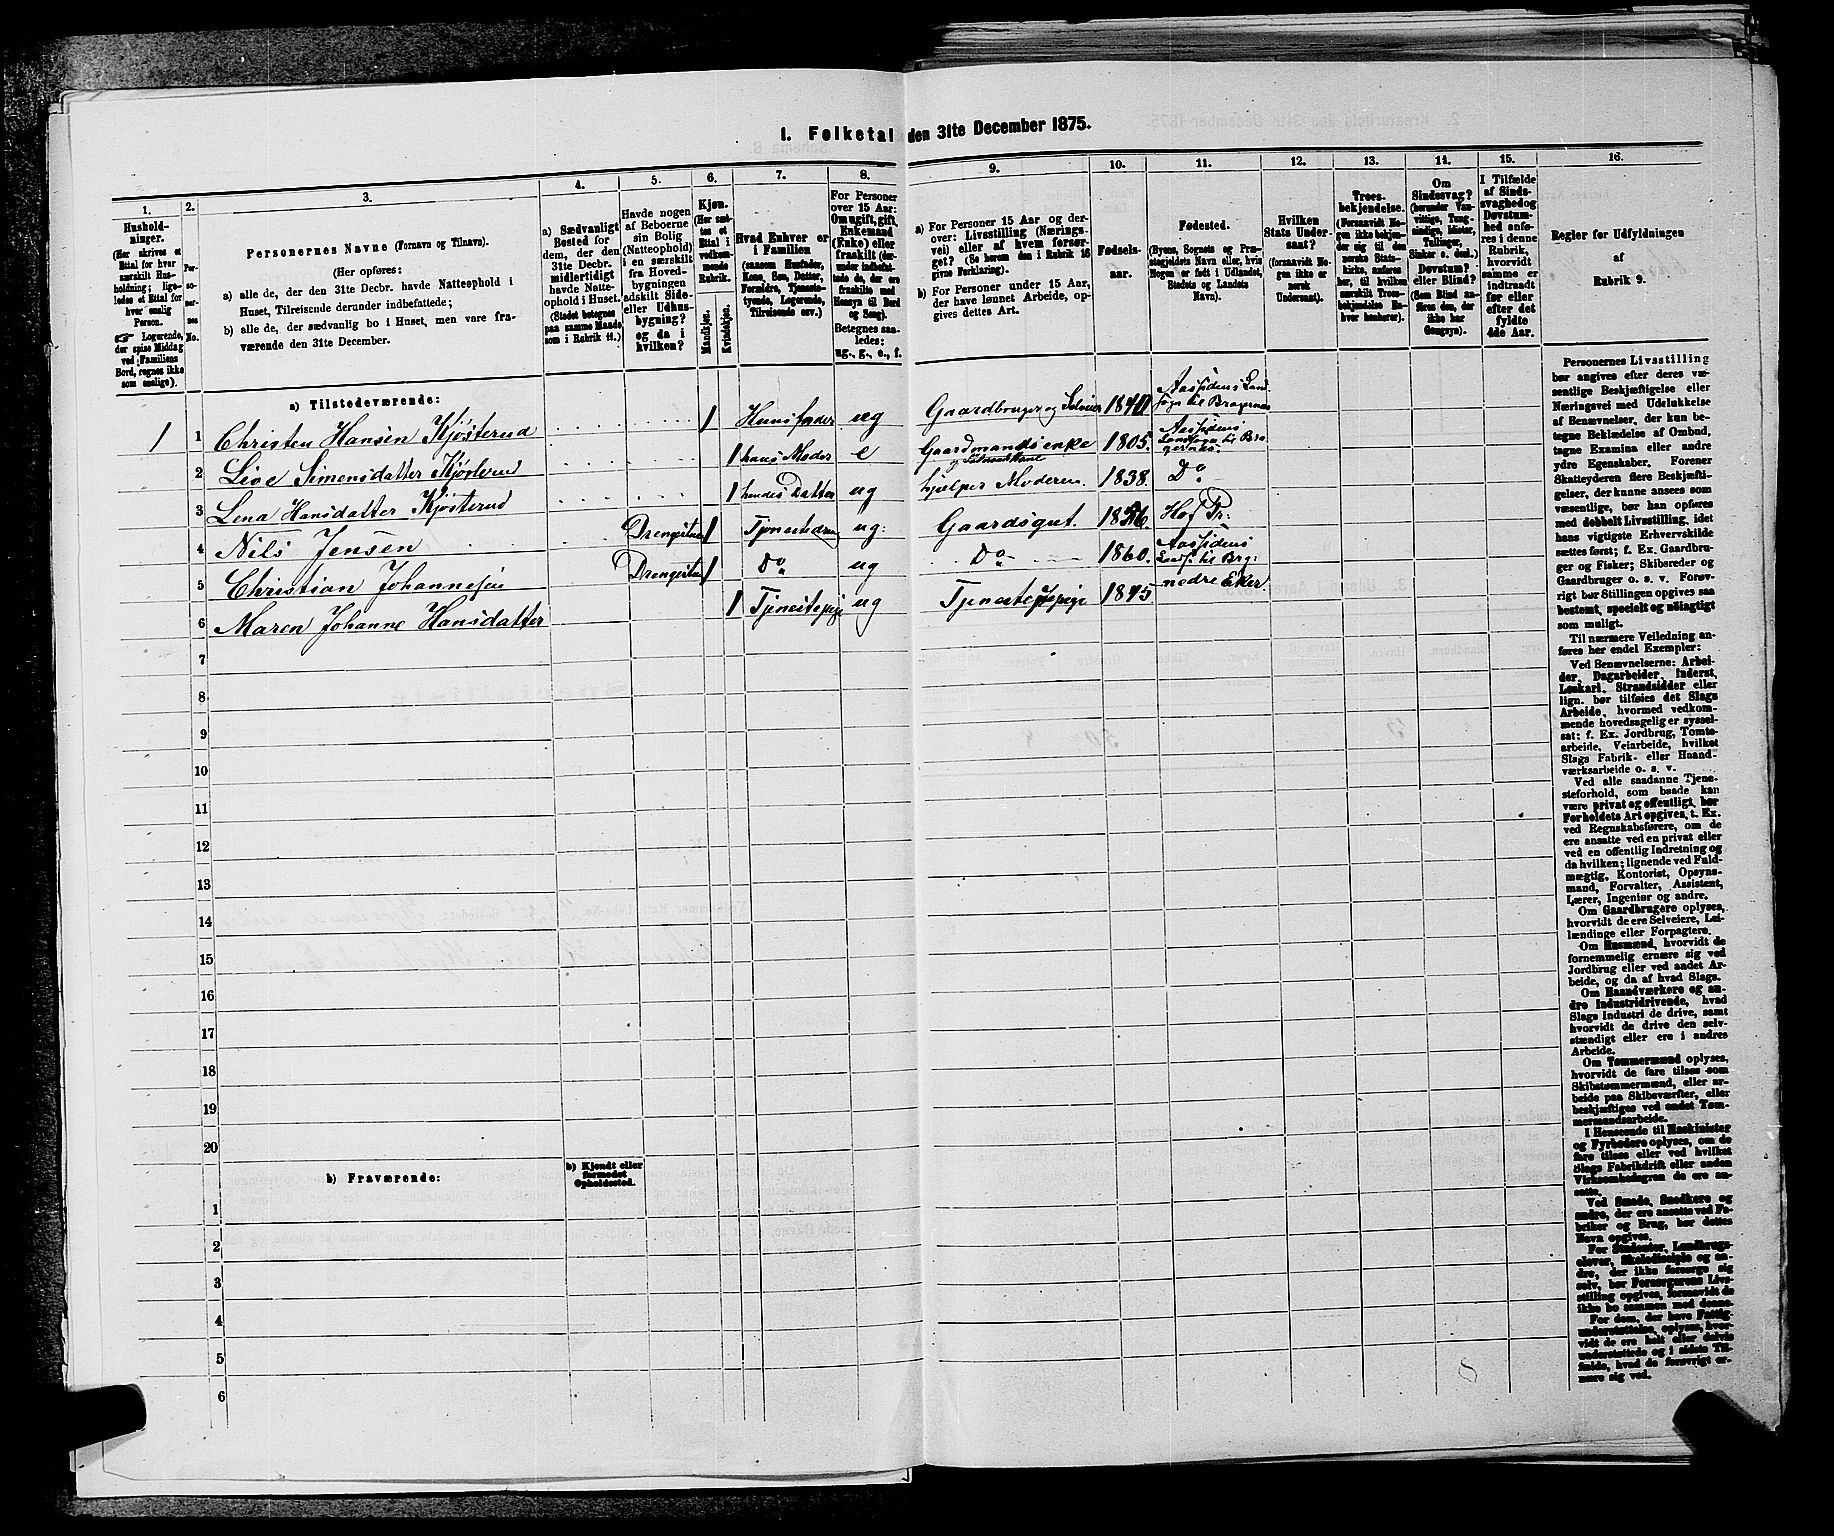 1. Folketal den 31te December 1875.
1. 2. 3. 4. 5. 6. 7. 8. 9. 10. 11. 12. 13. 14. 15. 16.
Hushold-
ninger.
(Her skrives et
Ettal for hver
særskilt Hus-
holdning; lige-
ledes et Ettal for
hver enslig
Person.
☞ Logerende,
der spise Middag
ved Familiens
Bord, regnes ikke
som enslige).
Per-
so-
ner-
nes
No.
Personernes Navne (Fornavn og Tilnavn).
(Her opføres:
a) alle de, der den 31te Decbr. havde Natteophold i
Huset, Tilreisende derunder indbefattede;
b) alle de, der sædvanlig bo i Huset, men vare fra-
værende den 31te December.
a) Sædvanligt
Bosted for
dem, der den
31te Decbr.
midlertidigt
havde Natte-
ophold i Huset.
(Stedet betegnes
paa samme Maade
som i Rubrik 11.)
Havde nogen
af Beboerne
sin Bolig
(Natteophold)
i en særskilt
fra Hoved-
bygningen
adskilt Side-
eller Udhus-
bygning?
og da i
hvilken?
Kjøn.
(Her sæt-
tes et
Ettal i
vedkom-
mende
Rubrik.
Mandkjøn.
Kvindekjøn.
Hvad Enhver er
i Familien
(saasom Husfader,
Kone, Søn, Datter,
Forældre, Tjeneste-
tyende, Logerende,
Tilreisende osv.)
For Personer
over 15 Aar:
Om ugift, gift,
Enkemand
(Enke) eller
fraskilt (der-
under indbefat-
tede de, der ere
fraskilte med
Hensyn til Bord
og Seng).
Betegnes saa-
ledes:
ug., g., e., f.
a) For Personer 15 Aar og der-
over: Livsstilling (Nærings-
vei) eller af hvem forsør-
get? (Se herom den i Rubrik 16
givne Forklaring).
b) For Personer under 15 Aar,
der have lønnet Arbeide, op-
gives dettes Art.
Fødsels-
aar.
Fødested.
(Byens, Sognets og Præ-
stegjeldets Navn eller, hvis
Nogen er født i Udlandet,
Stedets og Landets
Navn).
Hvilken
Stats Under-
saat?
(forsaavidt No-
gen ikke er
norsk
Undersaat).
Troes-
bekjendelse.
(Forsaavidt No-
gen ikke bekjen-
der sig til den
norske Stats-
kirke, anføres
her, til hvilken
særskilt Troes-
bekjendelse En-
hver henhører).
Om
Sindssvag?
(herunder Van-
vittige, Tung-
sindige, Idioter,
Tullinger,
Sinker o. desl.)
Døvstum?
eller Blind?
(Som Blind an-
føres den, der
ikke har
Gangsyn).
I Tilfælde
af Sinds-
svaghed og
Døvstum-
hed anfø-
res i denne
Rubrik,
hvorvidt
samme er
indtraadt
før eller
efter det
fyldte
4de Aar.
Regler for Udfyldningen
af
Rubrik 9.
a) Tilstedeværende:
1 1 Christen Hansen Kjøsterud 1 Huusfader ug Gaardbruger og Selveier 1840 Aassidens Land- sogn til Bragernæs
2 Live Simensdatter Kjøsterud 1 hans Moder e Gaardmandsenke 1805. Aassidens Landsogn til Bra- gernes.
3 Lena Hansdatter Kjøsterud 1 hendes Datter ug hjelper Moderen. 1838. Do
4 Nils Jensen Drengestue 1 Tjenestedreng ug. Gaardsgut. 1856. Hof Pr.
5 Christian Johannesen Drengestue 1 Do ug Do 1860. Aassidens Lands. til Brg:
6 Maren Johanne Hansdatter 1 Tjenestepige ug Tjenestepige 1845 nedre Eker
7
8
9
10
11
12
13
14
15
16
17
18
19
20
b) Fraværende:
b) Kjendt eller
formodet
Opholdssted.
1
2
3
4
5
6
Personernes Livsstilling
bør angives efter deres væ-
sentlige Beskjæftigelse eller
Næringsvei med Udelukkelse
af Benævnelser, der kun be-
tegne Beklædelse af Ombud,
tagne Examina eller andre
ydre Egenskaber. Forener
Skatteyderen flere Beskjæfti-
gelser, der kunne ansees som
væsentlige, bør han opføres
med dobbelt Livsstilling, idet
hans vigtigste Erhvervskilde
sættes først; f. Ex. Gaardbru-
ger og Fisker; Skibsreder og
Gaardbruger o. s. v. Forøv-
rigt bør Stillingen opgives saa
bestemt, specielt og nøiagtigt
som muligt.
Til nærmere Veiledning an-
føres her endel Exempler:
Ved Benævnelserne: Arbei-
der, Dagarbeider, Inderst,
Løskarl, Strandsidder eller
lign. bør tilføies det Slags
Arbeide, hvormed vedkom-
mende hovedsagelig er syssel-
sat; f. Ex. Jordbrug, Tomte-
arbeide, Veiarbeide, hvilket
Slags Fabrik- eller Haand-
værksarbeide o. s. v.
Ved alle saadanne Tjene-
steforhold, som baade kan
være privat og offentligt, bør
Forholdets Art opgives, t. Ex.
ved Regnskabsførere, om de
ere ansatte ved en privat eller
ved en offentlig Indretning og
da hvilken; lignende ved Fuld-
mægtig, Kontorist, Opsyns-
mand, Forvalter, Assistent,
Lærer, Ingeniør og andre.
Om Gaardbrugere oplyses,
hvorvidt de ere Selveiere, Lei-
lændinge eller Forpagtere.
Om Husmænd, hvorvidt de
fornemmelig ernære sig ved
Jordbrug eller ved andet Ar-
beide, og da af hvad Slags.
Om Haandværkere og an-
dre Industridrivende, hvad
Slags Industri de drive, samt
hvorvidt de drive den selv-
stændigt eller ere i andres
Arbeide.
Om Tømmermænd oplyses,
hvorvidt de fare tilsøs som
Skibstømmermænd, eller ar-
beide paa Skibsværfter, eller
beskjæftiges ved andet Tøm-
mermandsarbeide.
I Henseende til Maskinister
og Fyrbødere oplyses, om de
fare tilsøs eller ved hvilket
Slags Fabrikdrift eller anden
Virksomhedsgren de ere an-
satte.
Ved Smede, Snedkere og
andre, der ere ansatte ved Fa-
briker og Brug, bør dettes
Navn opgives.
For Studenter, Landbrugs-
elever, Skoledisciple og an-
dre, der ikke forsørge sig
selv, bør Forsørgerens Livs-
stilling opgives, forsaavidt de
ikke bo sammen med denne.
For dem, der have Fattig-
understøttelse, oplyses, hvor-
vidt de ere helt eller delvis
understøttede og i sidste Til-
fælde, hvad de forøvrigt er-
nære sig ved.